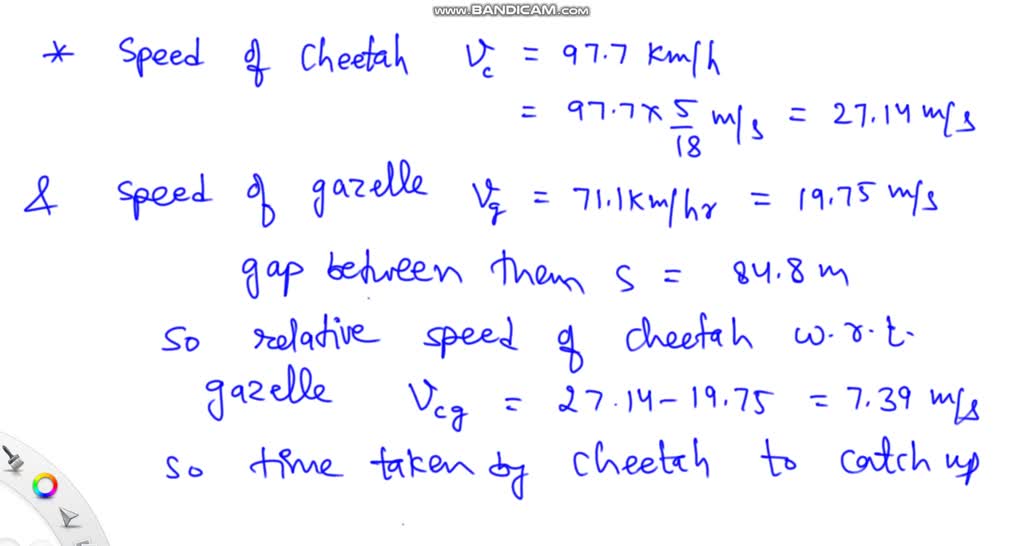 www.BANDICAM.com
* Speed of Cheetah Vc = 97.7 km/h
= 97.7 x 5/18 m/s = 27.14 m/s
& speed of gazelle Vg = 71.1 km/hr = 19.75 m/s
gap between them s = 84.8 m
so relative speed of cheetah w.r.t.
gazelle Vcg = 27.14 - 19.75 = 7.39 m/s
so time taken by cheetah to catch up